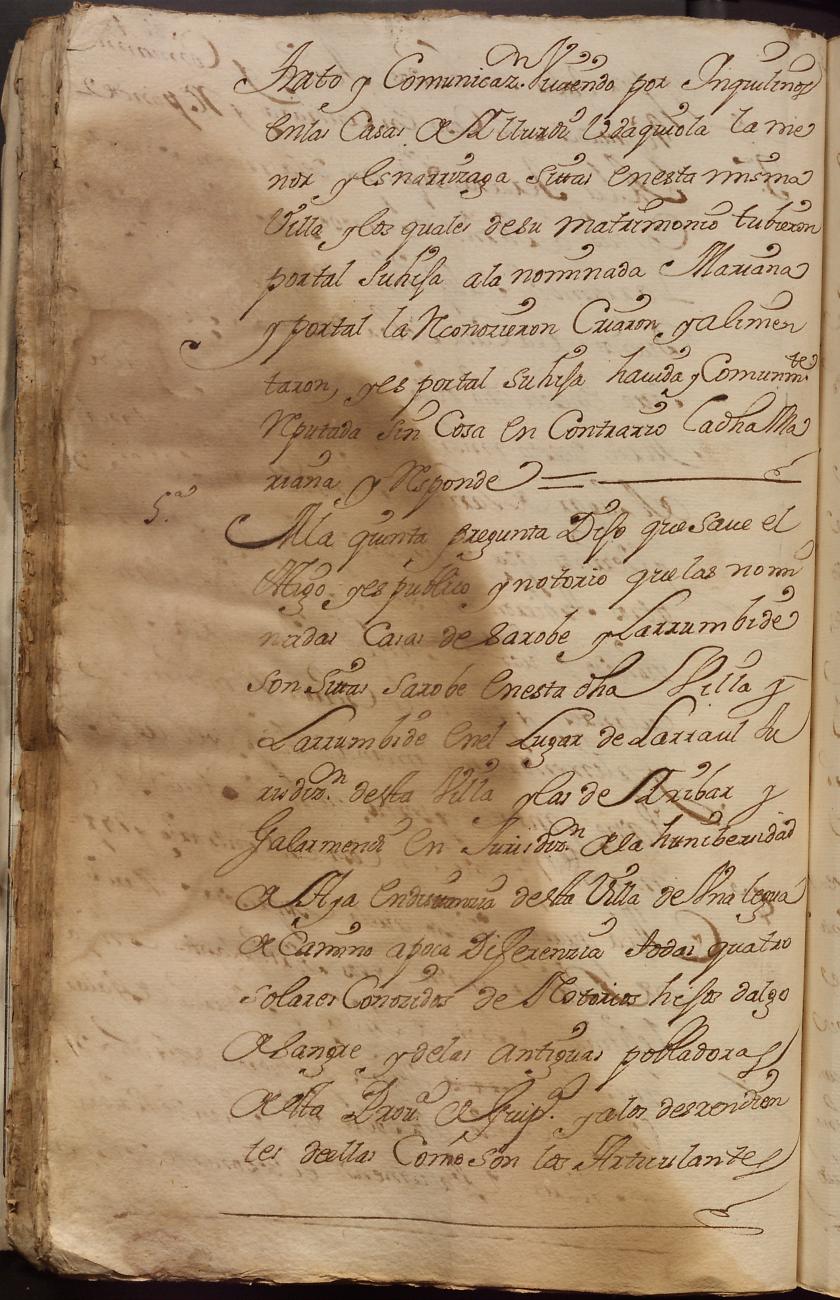 trato y Comunicazn. viuiendo por Inquilinos
en las Casas de Allurdi Udaquiola la me
nor y Esnarrizaga sittas en esta misma
Villa y los quales de su matrimonio tubieron
por tal su hija a la nominada Mariana
y por tal la Reconozieron Criaron y alimen
taron, y es por tal su hija hauida y Comunmte.
Reputada sin Cosa en Contrario la dha Ma
riana y Responde
5.a
A la quinta pregunta Dijo que saue el
ttigo y es publico y notorio que las nomi
nadas Casas de Sarobe y Larrumbide
son sittas Sarobe en esta dha Villa y
Larrumbide en el Lugar de Larraul Ju
risdizn. desta Villa y las de Aribar y
Galarmendi en Jurisdizn de la huniversidad
de Aya en distanzia desta Villa de Una legua
de Camino a poca Diferenzia todas quatro
solares Conozidos de Notorios hijos dalgo
de Sangre y de las antiguas pobladoras
de esta Prou.a de Guip.a y a los deszendien
tes de ellas Como son los Articulantes